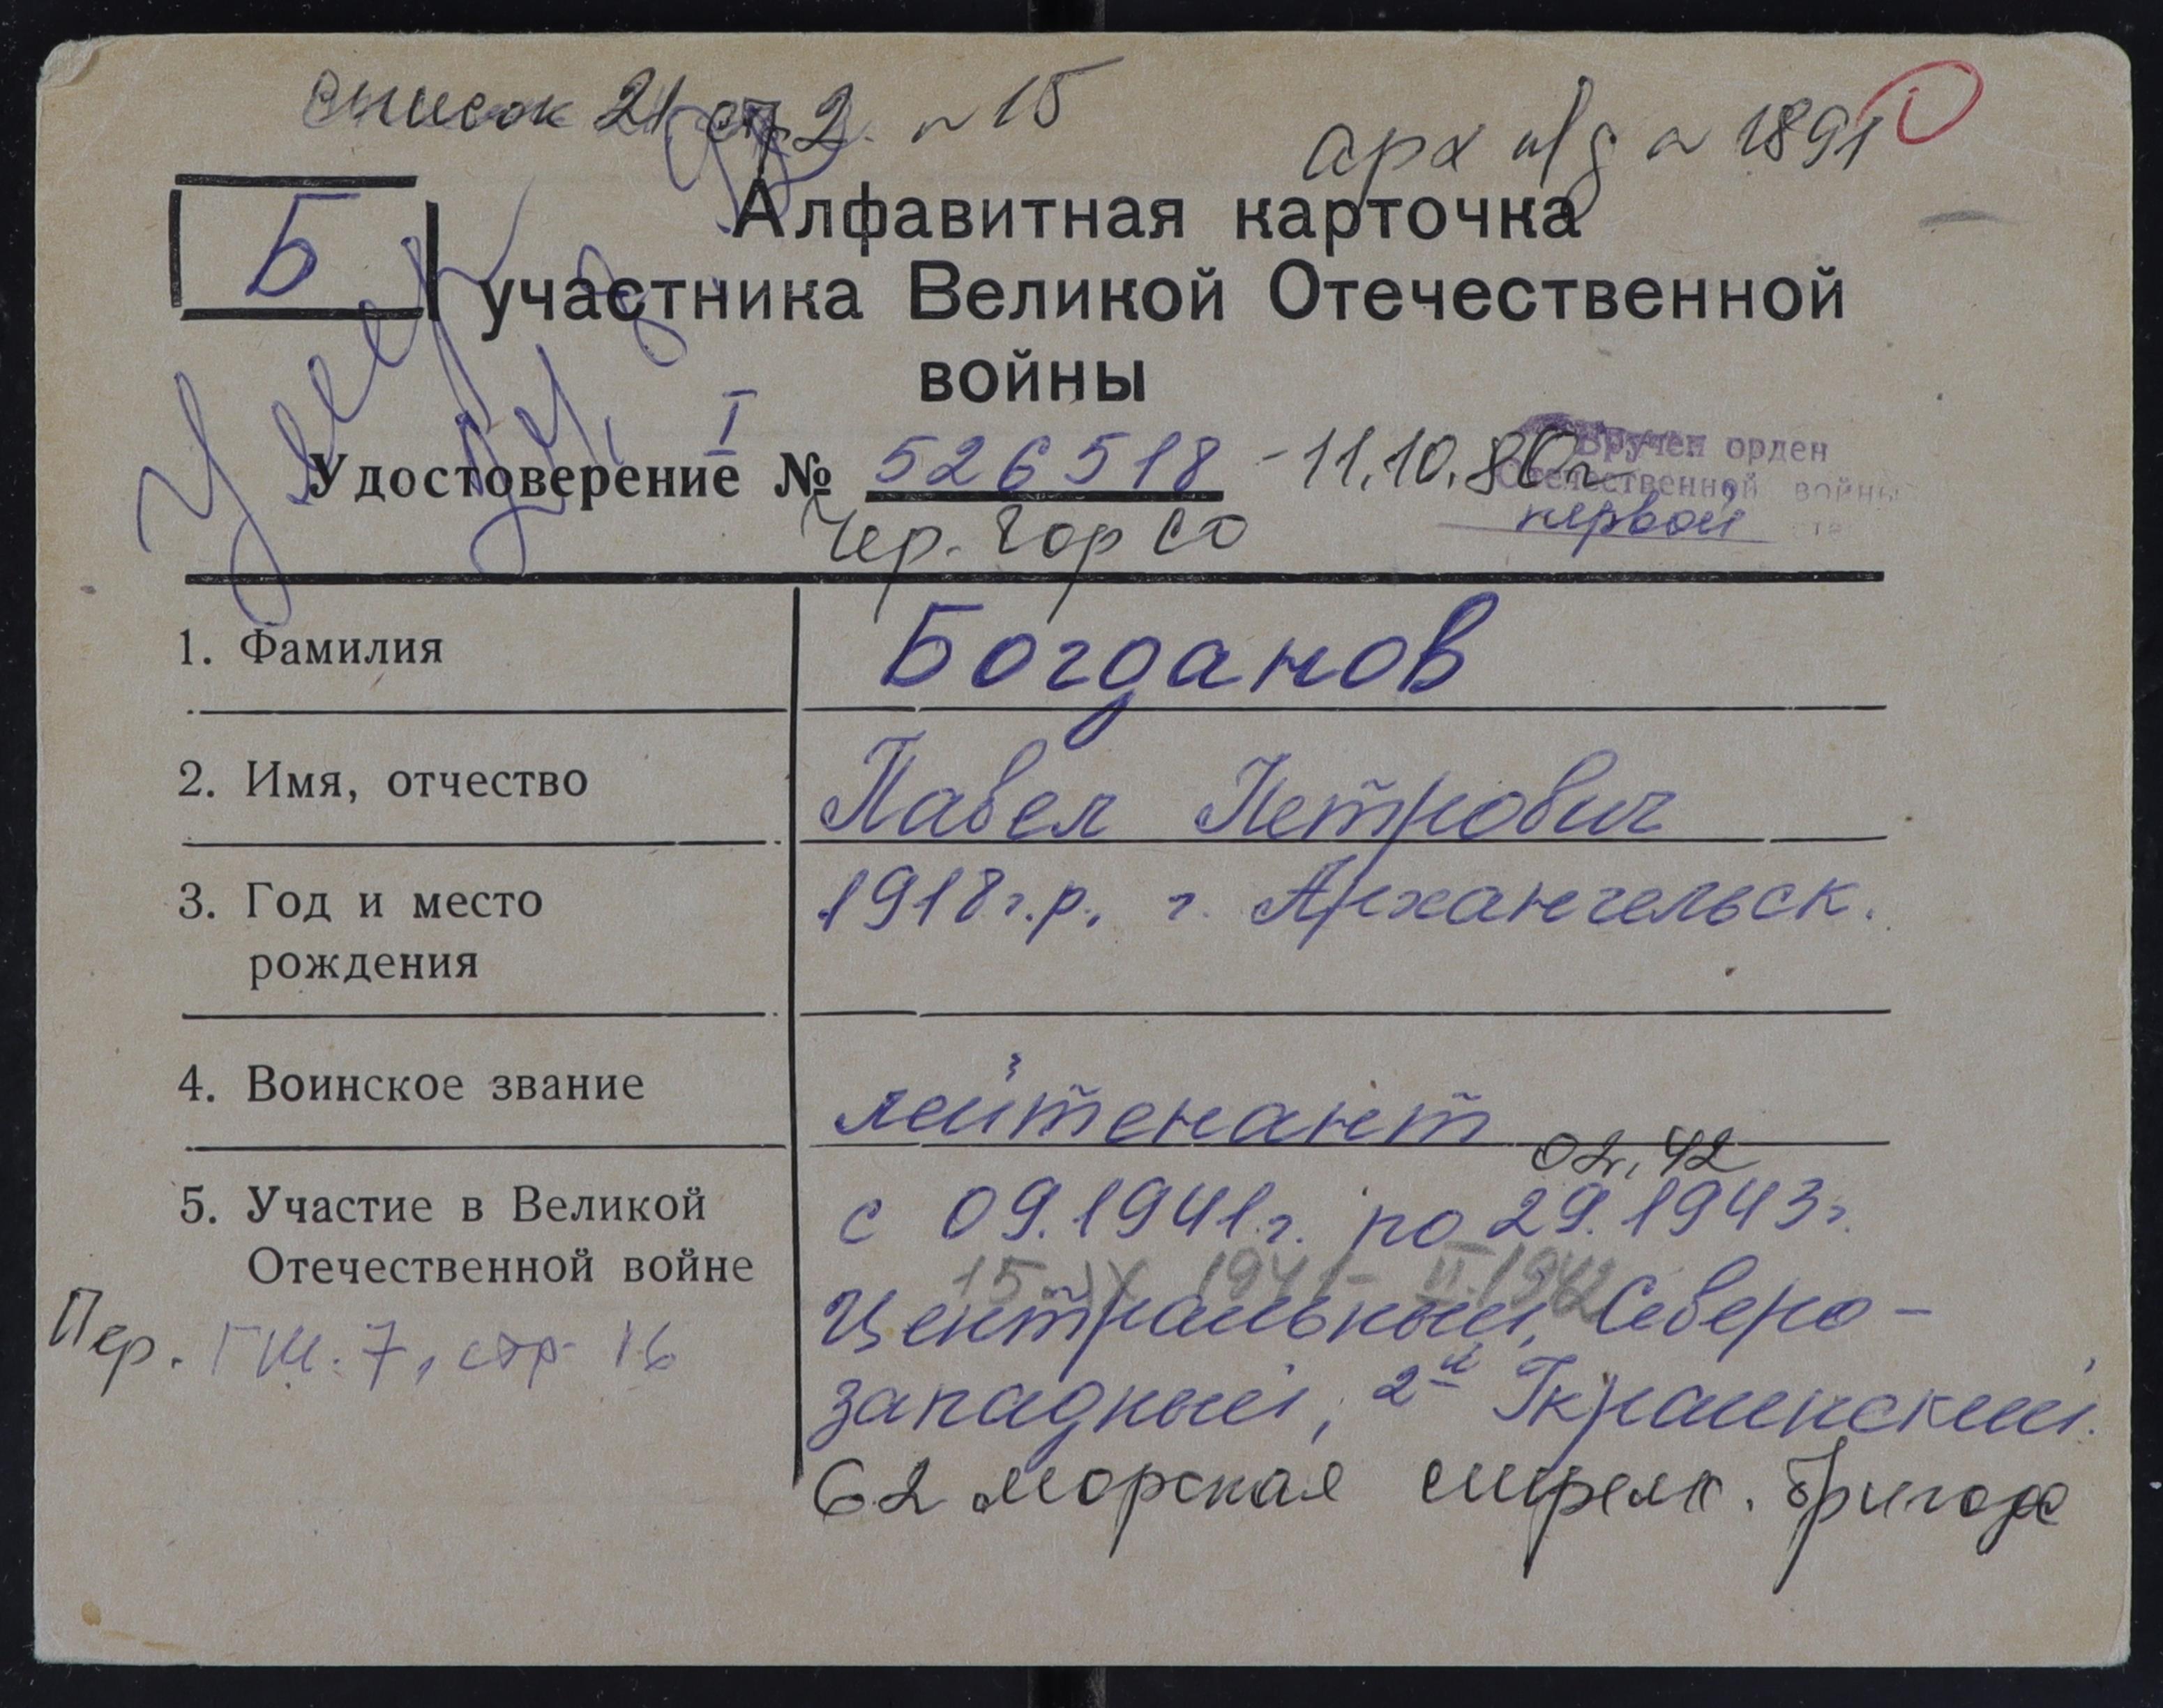 список 21 стр 2. № 15
арх л/д № 1891
Б
Алфавитная карточка
участника Великой Отечественной
войны
Умер
I
Удостоверение № 526518 - 11.10.80г
Вручен орден
Отечественной войны
первой
Чер. Гор СО
1. Фамилия
Богданов
2. Имя, отчество
Павел Петрович
3. Год и место
рождения
1918 г.р., г. Архангельск.
4. Воинское звание
лейтенант
5. Участие в Великой
Отечественной войне
02.42
с 09.1941 г. по 29.1943 г.
15. IX 1941 - II.1942
Центральный, Северо-
западный, 2й Украинский.
62 морская стрелк. бригада
Пер. ГШ. 7, стр 16